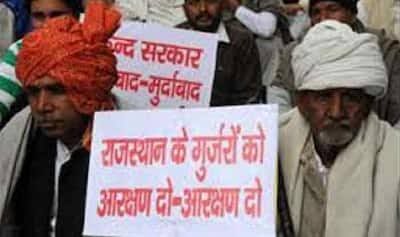 न्द सरकार
वाद-मुर्दाबाद
राजस्थान के गुर्जरों को
आरक्षण दो-आरक्षण दो